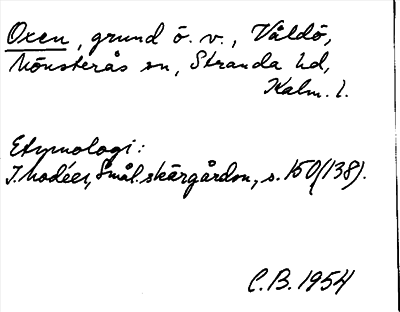 Oxen, grund ö. v., Våldö,
Mönsterås sn, Stranda hd,
Kalm. l.
Etymologi:
I. Modéer, Smål. skärgårdsn, s. 150 (138).
C.B. 1954